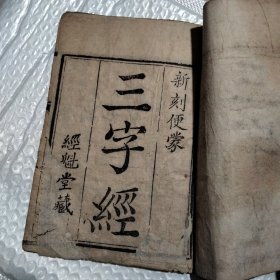 新刻便蒙
三字經
經魁堂藏